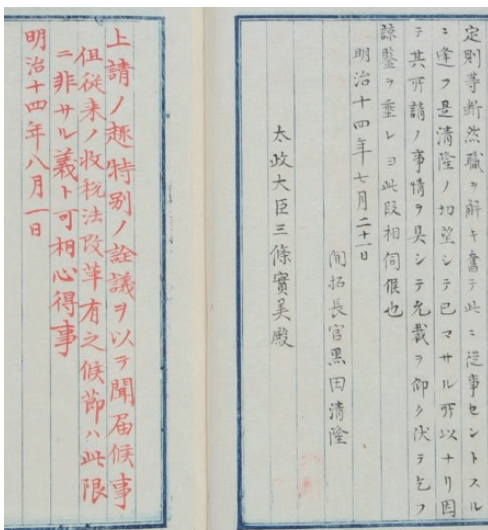 定則等断然職ヲ解キ奮テ此ニ従事セントスル
ニ逢フ是清隆ノ切望シテ已マサル所以ナリ因
テ其所請ノ事情ヲ具シテ允裁ヲ仰ク伏テ乞フ
諒鑒ヲ垂レヨ此段相伺候也
明治十四年七月二十一日
開拓長官黒田清隆
太政大臣三條實美殿
上請ノ趣特別ノ詮議ヲ以テ聞届候事
但従来ノ收税法改革有之候節ハ此限
ニ非サル義ト可相心得事
明治十四年八月一日